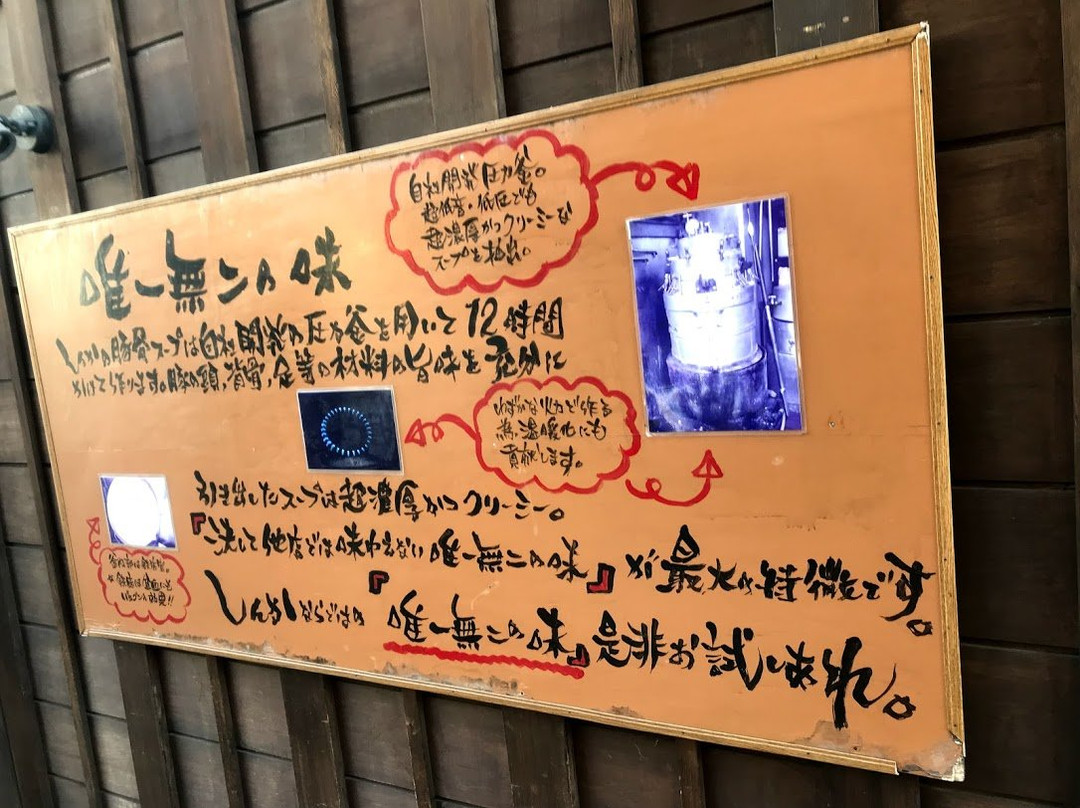 自社開発圧力釜。
超低音・低圧でも
超濃厚かつクリーミーな
スープを抽出。
唯一無二の味
しんかの豚骨スープは自社開発の圧力釜を用いて12時間
かけて作ります。豚の頭、背骨、足等の材料の旨味を充分に
わずかな火力で作る
為、温暖化にも
貢献します。
引き出したスープは超濃厚かつクリーミー。
『決して他店では味わえない唯一無二の味』が最大の特徴です。
しんかならではの『唯一無二の味』是非お試しあれ。